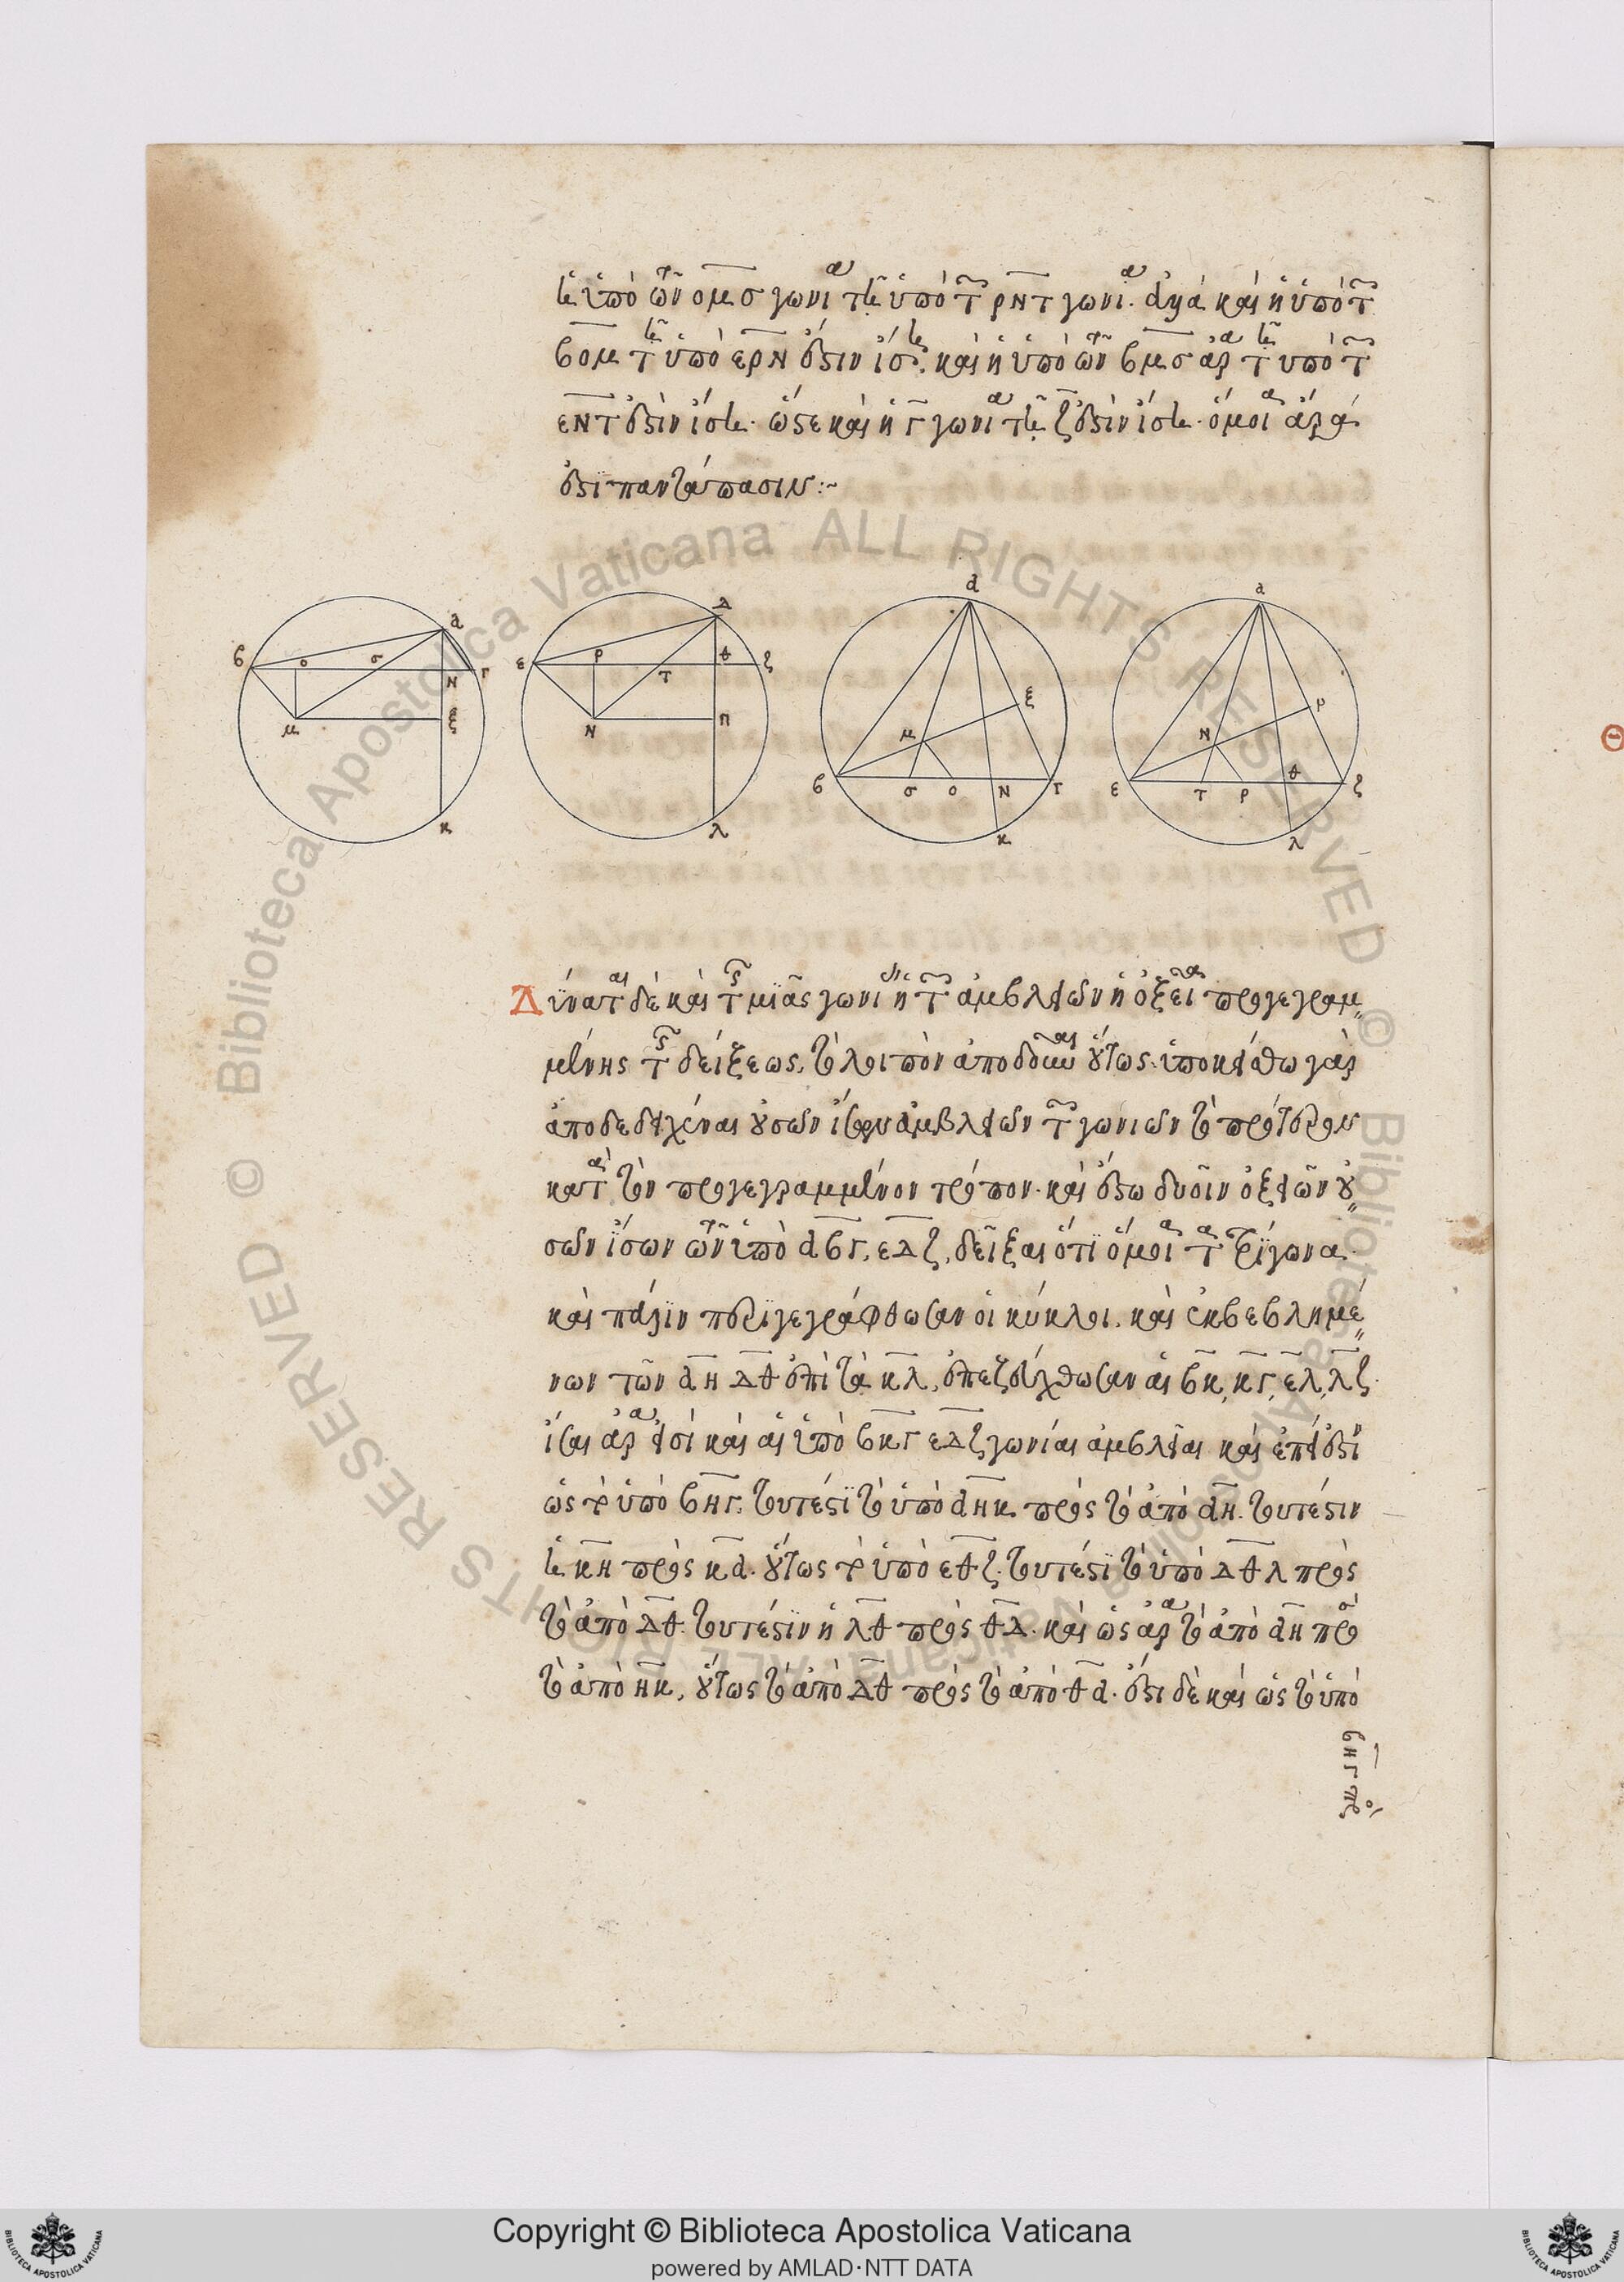 ἡ ὑπὸ τῶν ομσ γωνία τῇ ὑπὸ τῶν ρντ γωνίᾳ. ἀλλὰ καὶ ἡ ὑπὸ τῶν
βομ τῇ ὑπὸ ερν ἐστὶν ἴση. καὶ ἡ ὑπὸ τῶν βμσ ἄρα τῇ ὑπὸ τῶν
εντ ἐστὶν ἴση. ὥστε καὶ ἡ γ γωνία τῇ ζ ἐστὶν ἴση. ὅμοια ἄρα
ἐστὶ παντάπασιν:~
α
β ο σ
ν γ
μ ξ
κ
δ
ε ρ θ ζ
τ
ν π
λ
α
ξ
μ
β σ ο ν γ
κ
α
ρ
ν
ε τ ρ θ ζ
λ
Δύναται δὲ καὶ τῆς μιᾶς γωνι ἢ τῶν ἀμβλειῶν ἢ ὀξεῖα προγεγραμ
μένης τῆς δείξεως, τὸ λοιπὸν οὕτως. ὑποκείσθω γὰρ
ἀποδεδειχέναι οὐσῶν ἀμβλειῶν τῶν γωνιῶν τὸ πρότερον
κατὰ τὸν προγεγραμμένον τρόπον. καὶ ἔστω δυοῖν ὀξειῶν οὐ
σῶν ἴσων τῶν ὑπὸ αβγ, εδζ, δεῖξαι ὅτι ὅμοια τὰ τρίγωνα.
καὶ πάλιν περιγεγράφθωσαν οἱ κύκλοι. καὶ ἐκβεβλημέ
νων τῶν αη δθ ἐπὶ τὰ κλ, ἐπεζεύχθωσαν αἱ βκ, κγ, ελ, λζ.
ἴσαι ἄρα εἰσὶ καὶ αἱ ὑπὸ βκγ εδζ γωνίαι ἀμβλεῖαι καὶ ἐπεί ἐστιν
ὡς τὸ ὑπὸ βηγ, τουτέστι τὸ ὑπὸ αηκ πρὸς τὸ ἀπὸ αη. τουτέστιν
ἡ κη πρὸς κα. οὕτως τὸ ὑπὸ εθζ. τουτέστι τὸ ὑπὸ δθλ πρὸς
τὸ ἀπὸ δθ. τουτέστιν ἡ λθ πρὸς θδ. καὶ ὡς ἄρα τὸ ἀπὸ αη πρὸς
τὸ ἀπὸ ηκ, οὕτως τὸ ἀπὸ δθ πρὸς τὸ ἀπὸ θα. ἔστι δὲ καὶ ὡς τὸ ὑπὸ
βηγ πρὸς
Θ
© Biblioteca Apostolica Vaticana ALL RIGHTS RESERVED © Biblioteca Apostolica Vaticana ALL RIGHTS RESERVED
Copyright © Biblioteca Apostolica Vaticana
powered by AMLAD·NTT DATA
BIBLIOTECA APOSTOLICA VATICANA
BIBLIOTECA APOSTOLICA VATICANA